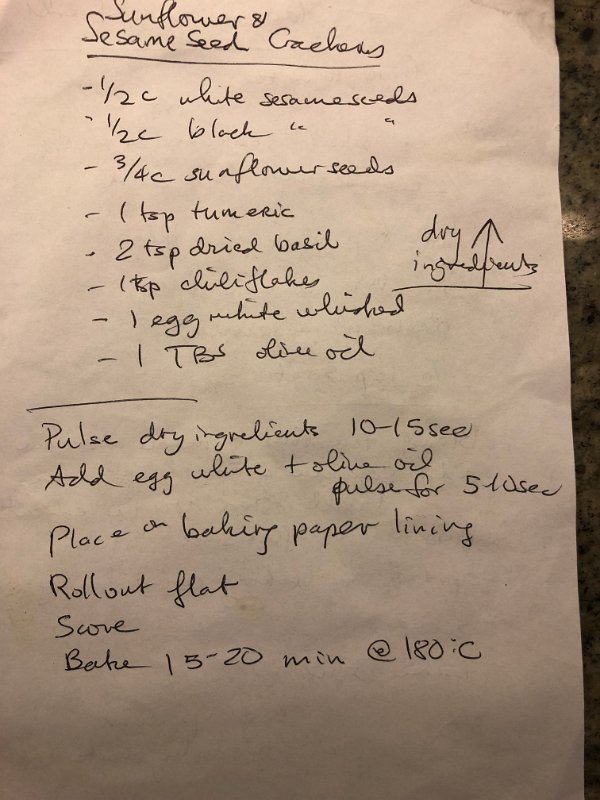 Sunflower &
Sesame Seed Crackers
- 1/2 c white sesame seeds
- 1/2 c black " "
- 3/4 c sunflower seeds
- 1 tsp tumeric
- 2 tsp dried basil
- 1 tsp chiliflakes
dry
ingredients
- 1 egg white whisked
- 1 TBS olive oil
Pulse dry ingredients 10-15 sec
Add egg white + olive oil
pulse for 5-10 sec
Place on baking paper lining
Rollout flat
Score
Bake 15-20 min @ 180°C